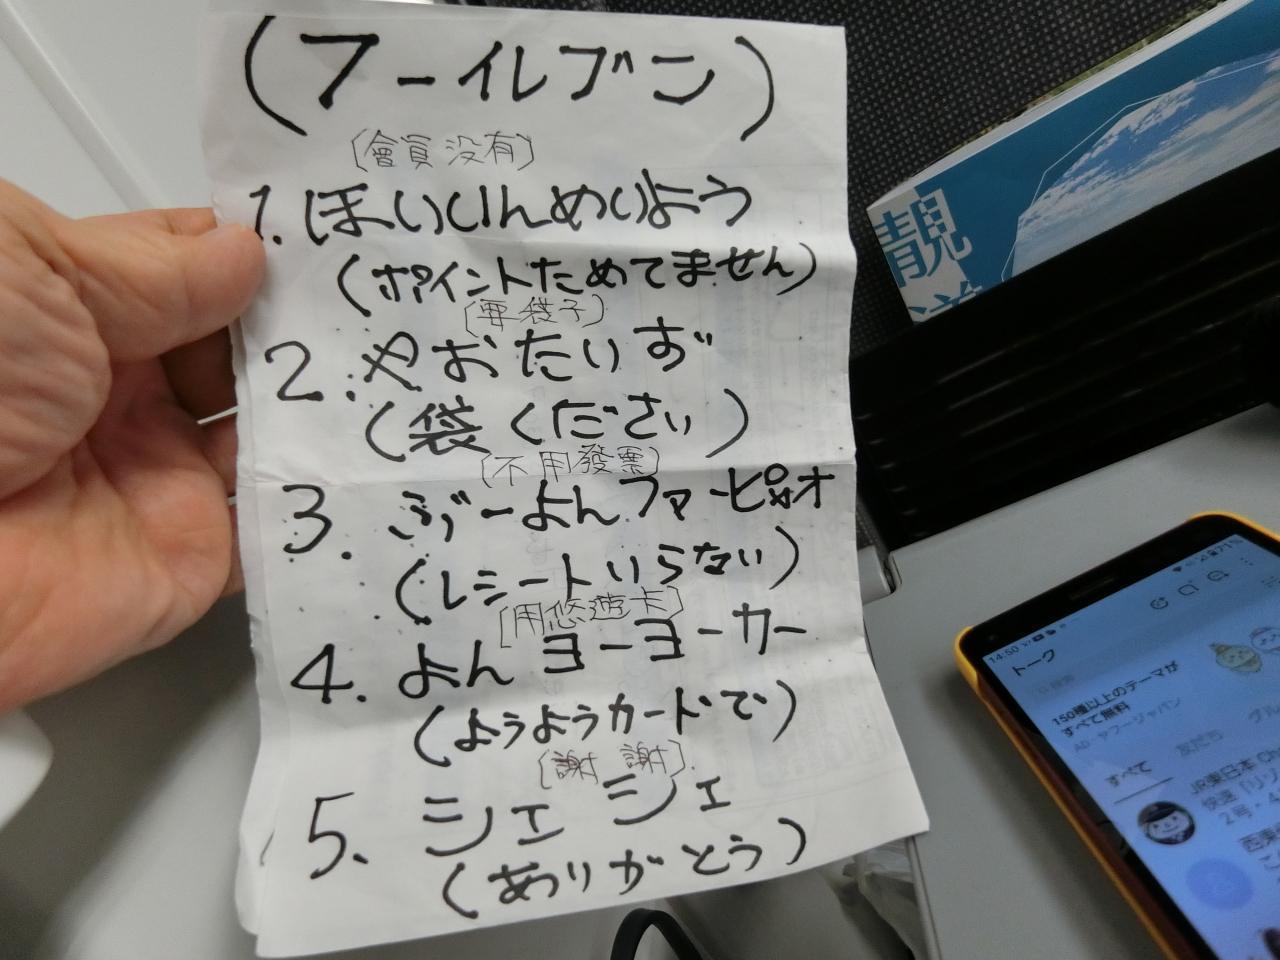 (フーイレブン)
(會員没有)
1.ほいいんめいよう
(ポイントためてません)
(要袋子)
2.やおたいず
(袋ください)
(不用發票)
3.ぶーよんファーピァオ
(レシートいらない)
(用悠遊卡)
4.よんヨーヨーカー
(ようようカードで)
(謝謝)
5.シェシェ
(ありがとう)
靚
14:50
トーク
150種以上のテーマが
すべて無料
AD・ヤフージャパン
すべて
友だち
グル
JR東日本 Ch
2号・4